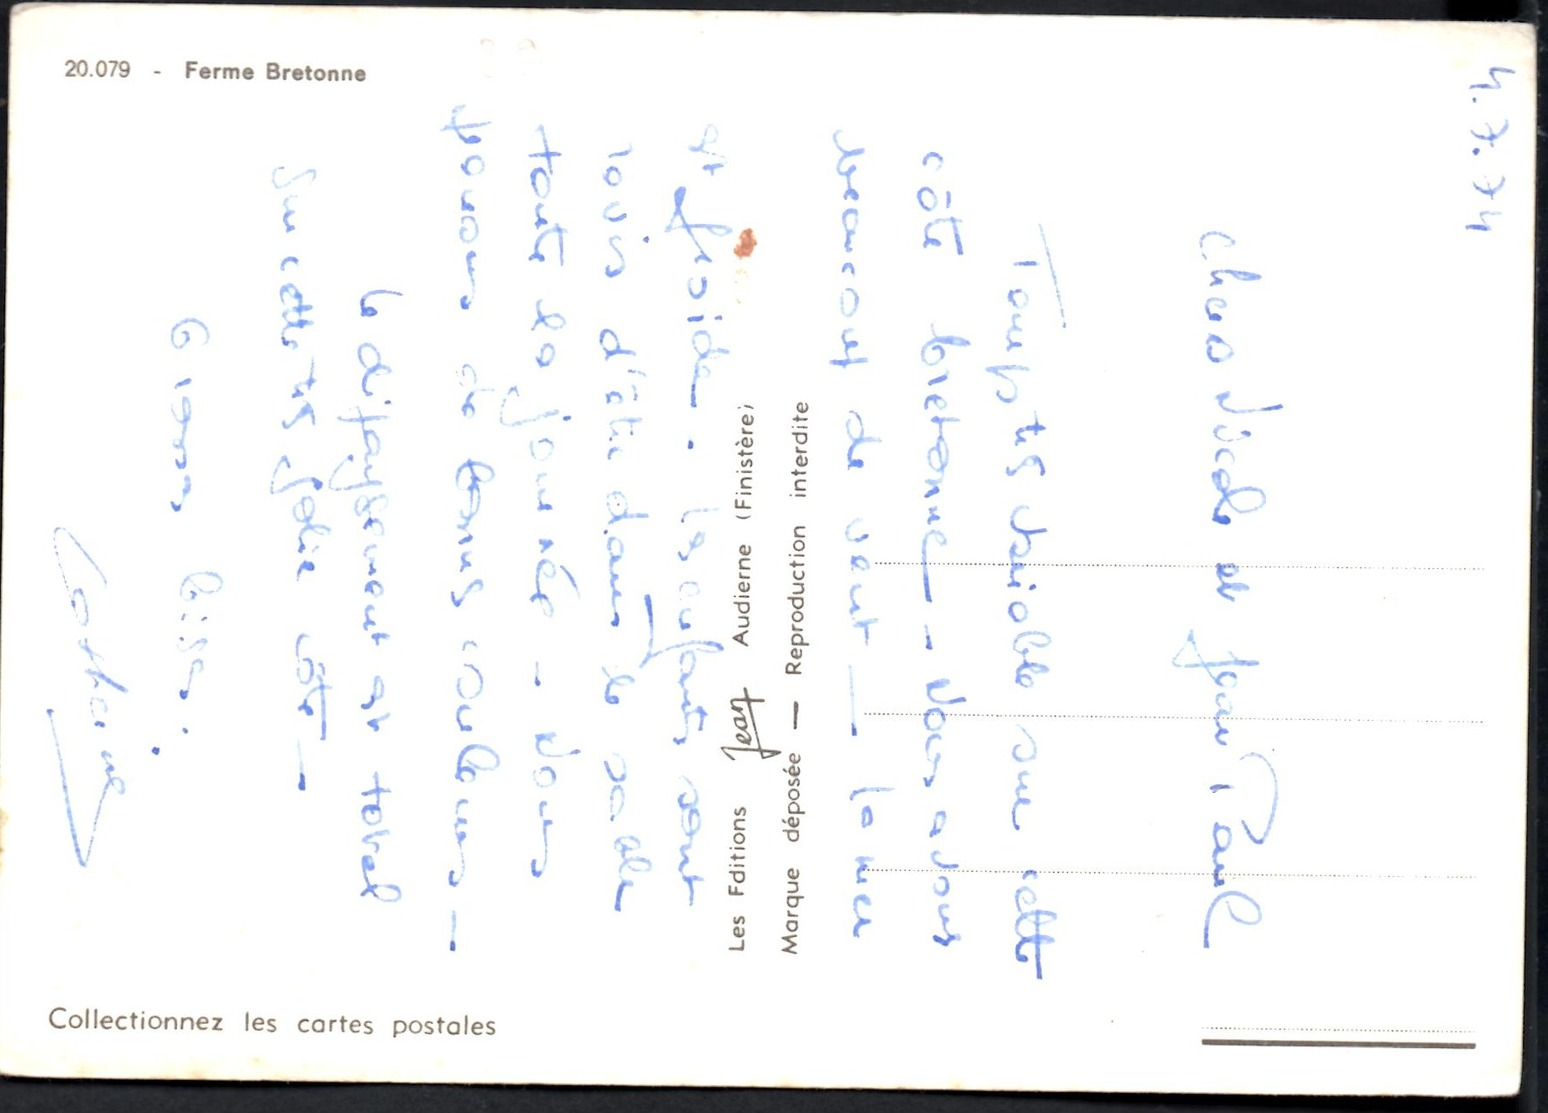 20.079 - Ferme Bretonne
4.7.74
Chers Nicole et Jean Paul
Temps très variable sur cette
côte bretonne - Nous avons
beaucoup de vent - la mer
est froide. Les enfants sont
ravis d'être dans le sable
toute la journée - Nous
prenons de bonnes couleurs -
Le dépaysement est total
sur cette très jolie côte -
Grosses bises.
Catherine
Les Editions Jean Audierne (Finistère)
Marque déposée — Reproduction interdite
Collectionnez les cartes postales